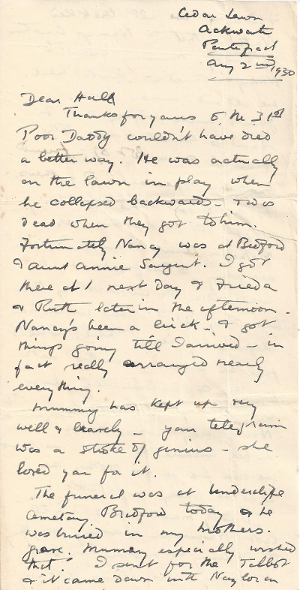 Cedar Lawn
Ackworth
Pontefract
Aug 2nd 1930
Dear Hall
Thanks for yours of the 31st
Poor Daddy couldn't have died
a better way. He was actually
on the lawn in play when
he collapsed backwards & was
dead when they got to him.
Fortunately Nancy was at Bedford
& Aunt Annie Sargent. I got
there at 1 next day & Frieda
& Ruth later in the afternoon.
Nancy's been a brick & got
things going till I arrived - in
fact really arranged nearly
everything.
Mummy has kept up very
well & bravely - your telegram
was a stroke of genius - she
loved you for it.
The funeral was at Undercliffe
Cemetery Bradford today & he
was buried in my mothers
grave. Mummy especially wished
that. I sent for the Talbot
& it came down with Naylor on